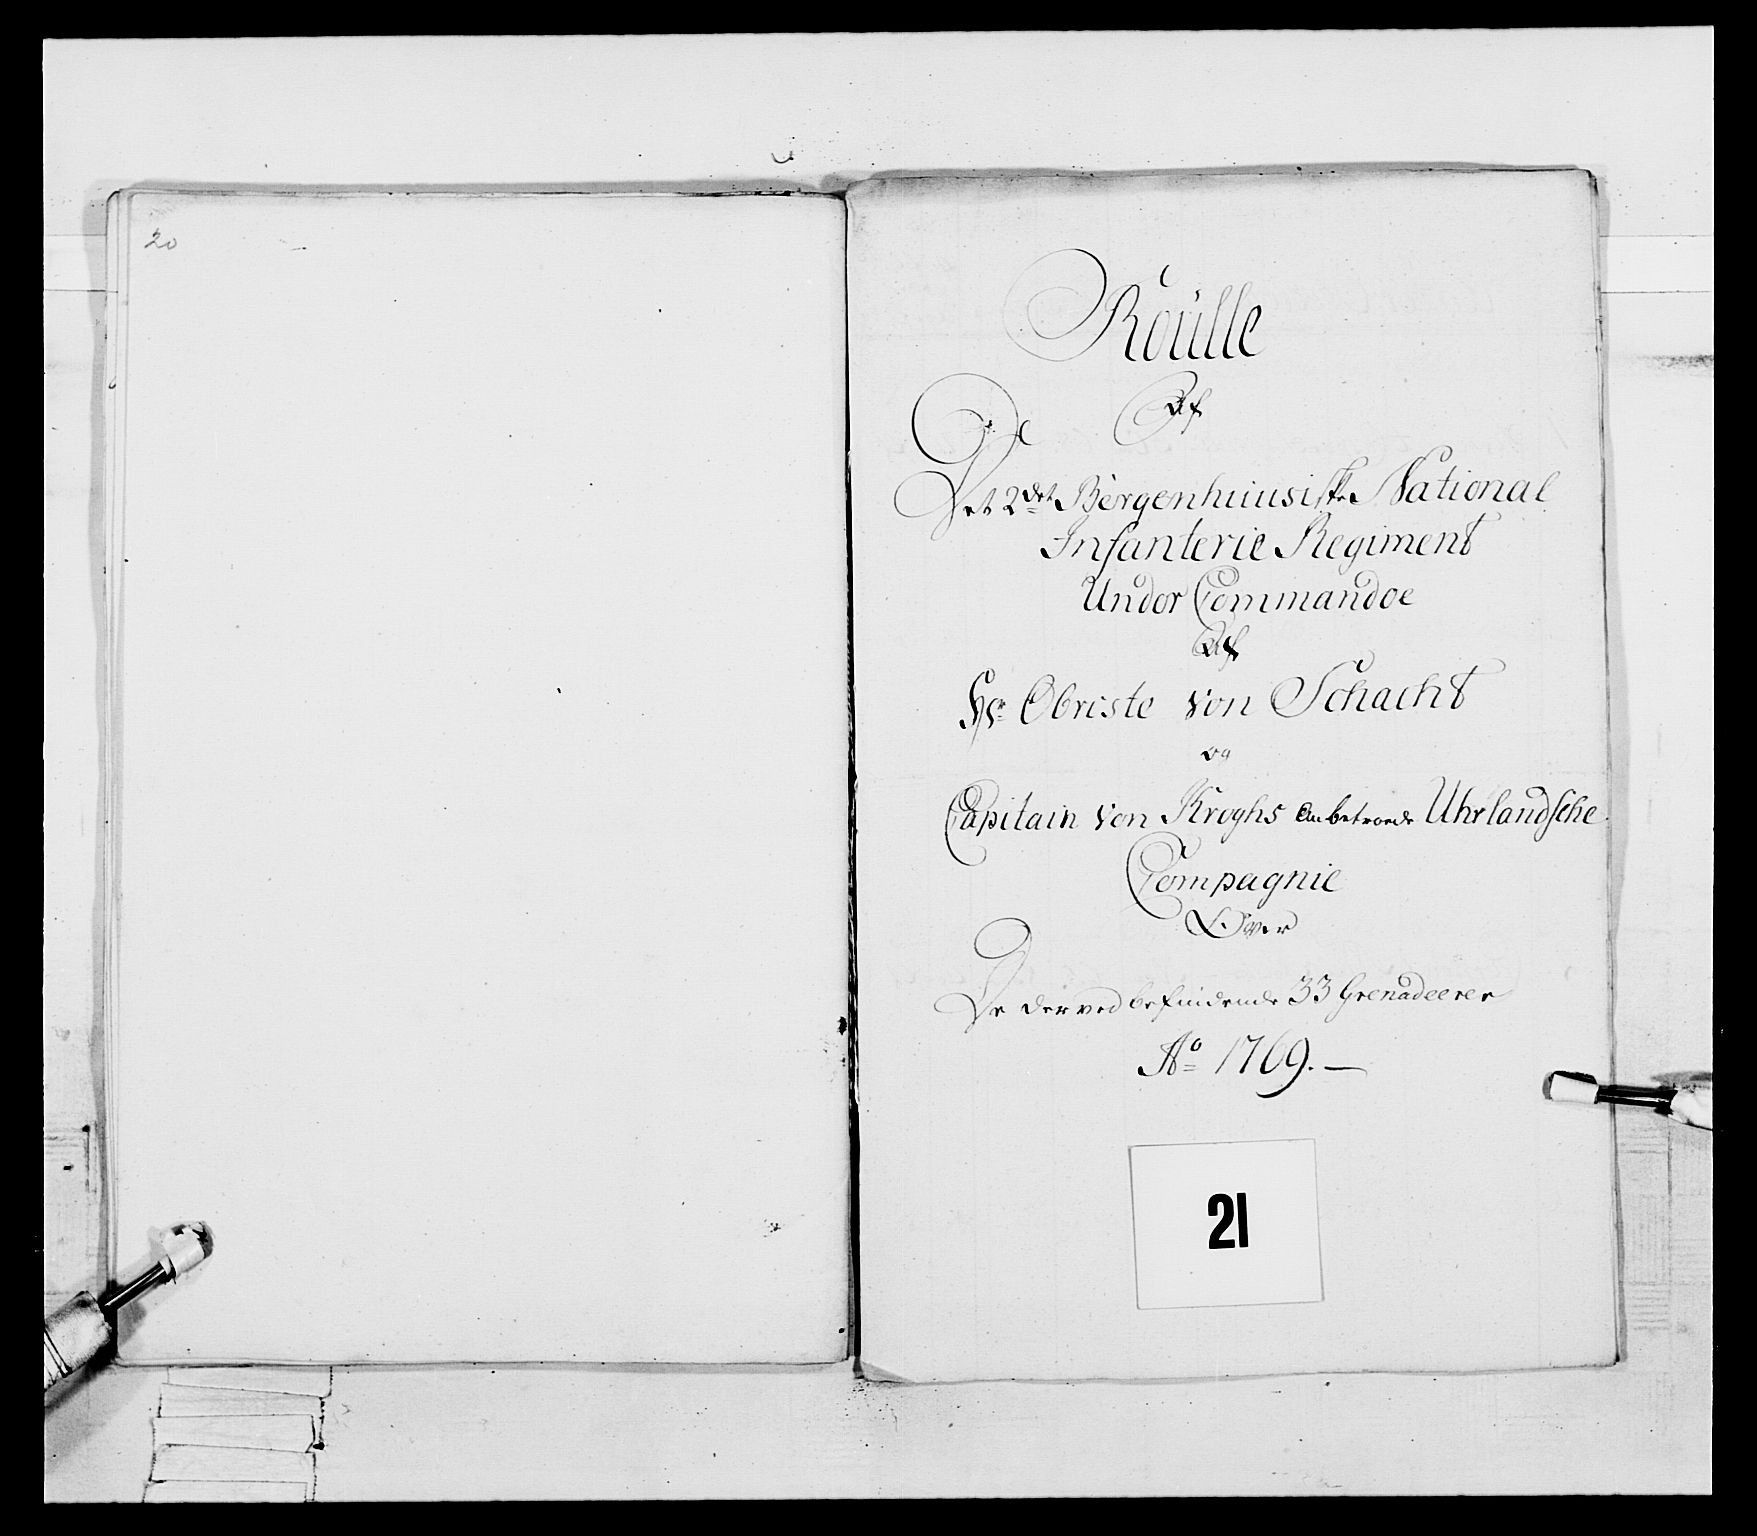 20
Roülle
Af
Det 2det Bergenhuusiske National
Infanterie Regiment
Under Commandoe
Af
Hr Obriste von Schacht
og
Capitain von Kroghs Anbetroede Uhrlandsche
Compagnie
Over
De derved befindende 33 Grenadeerer
Ao 1769.
21